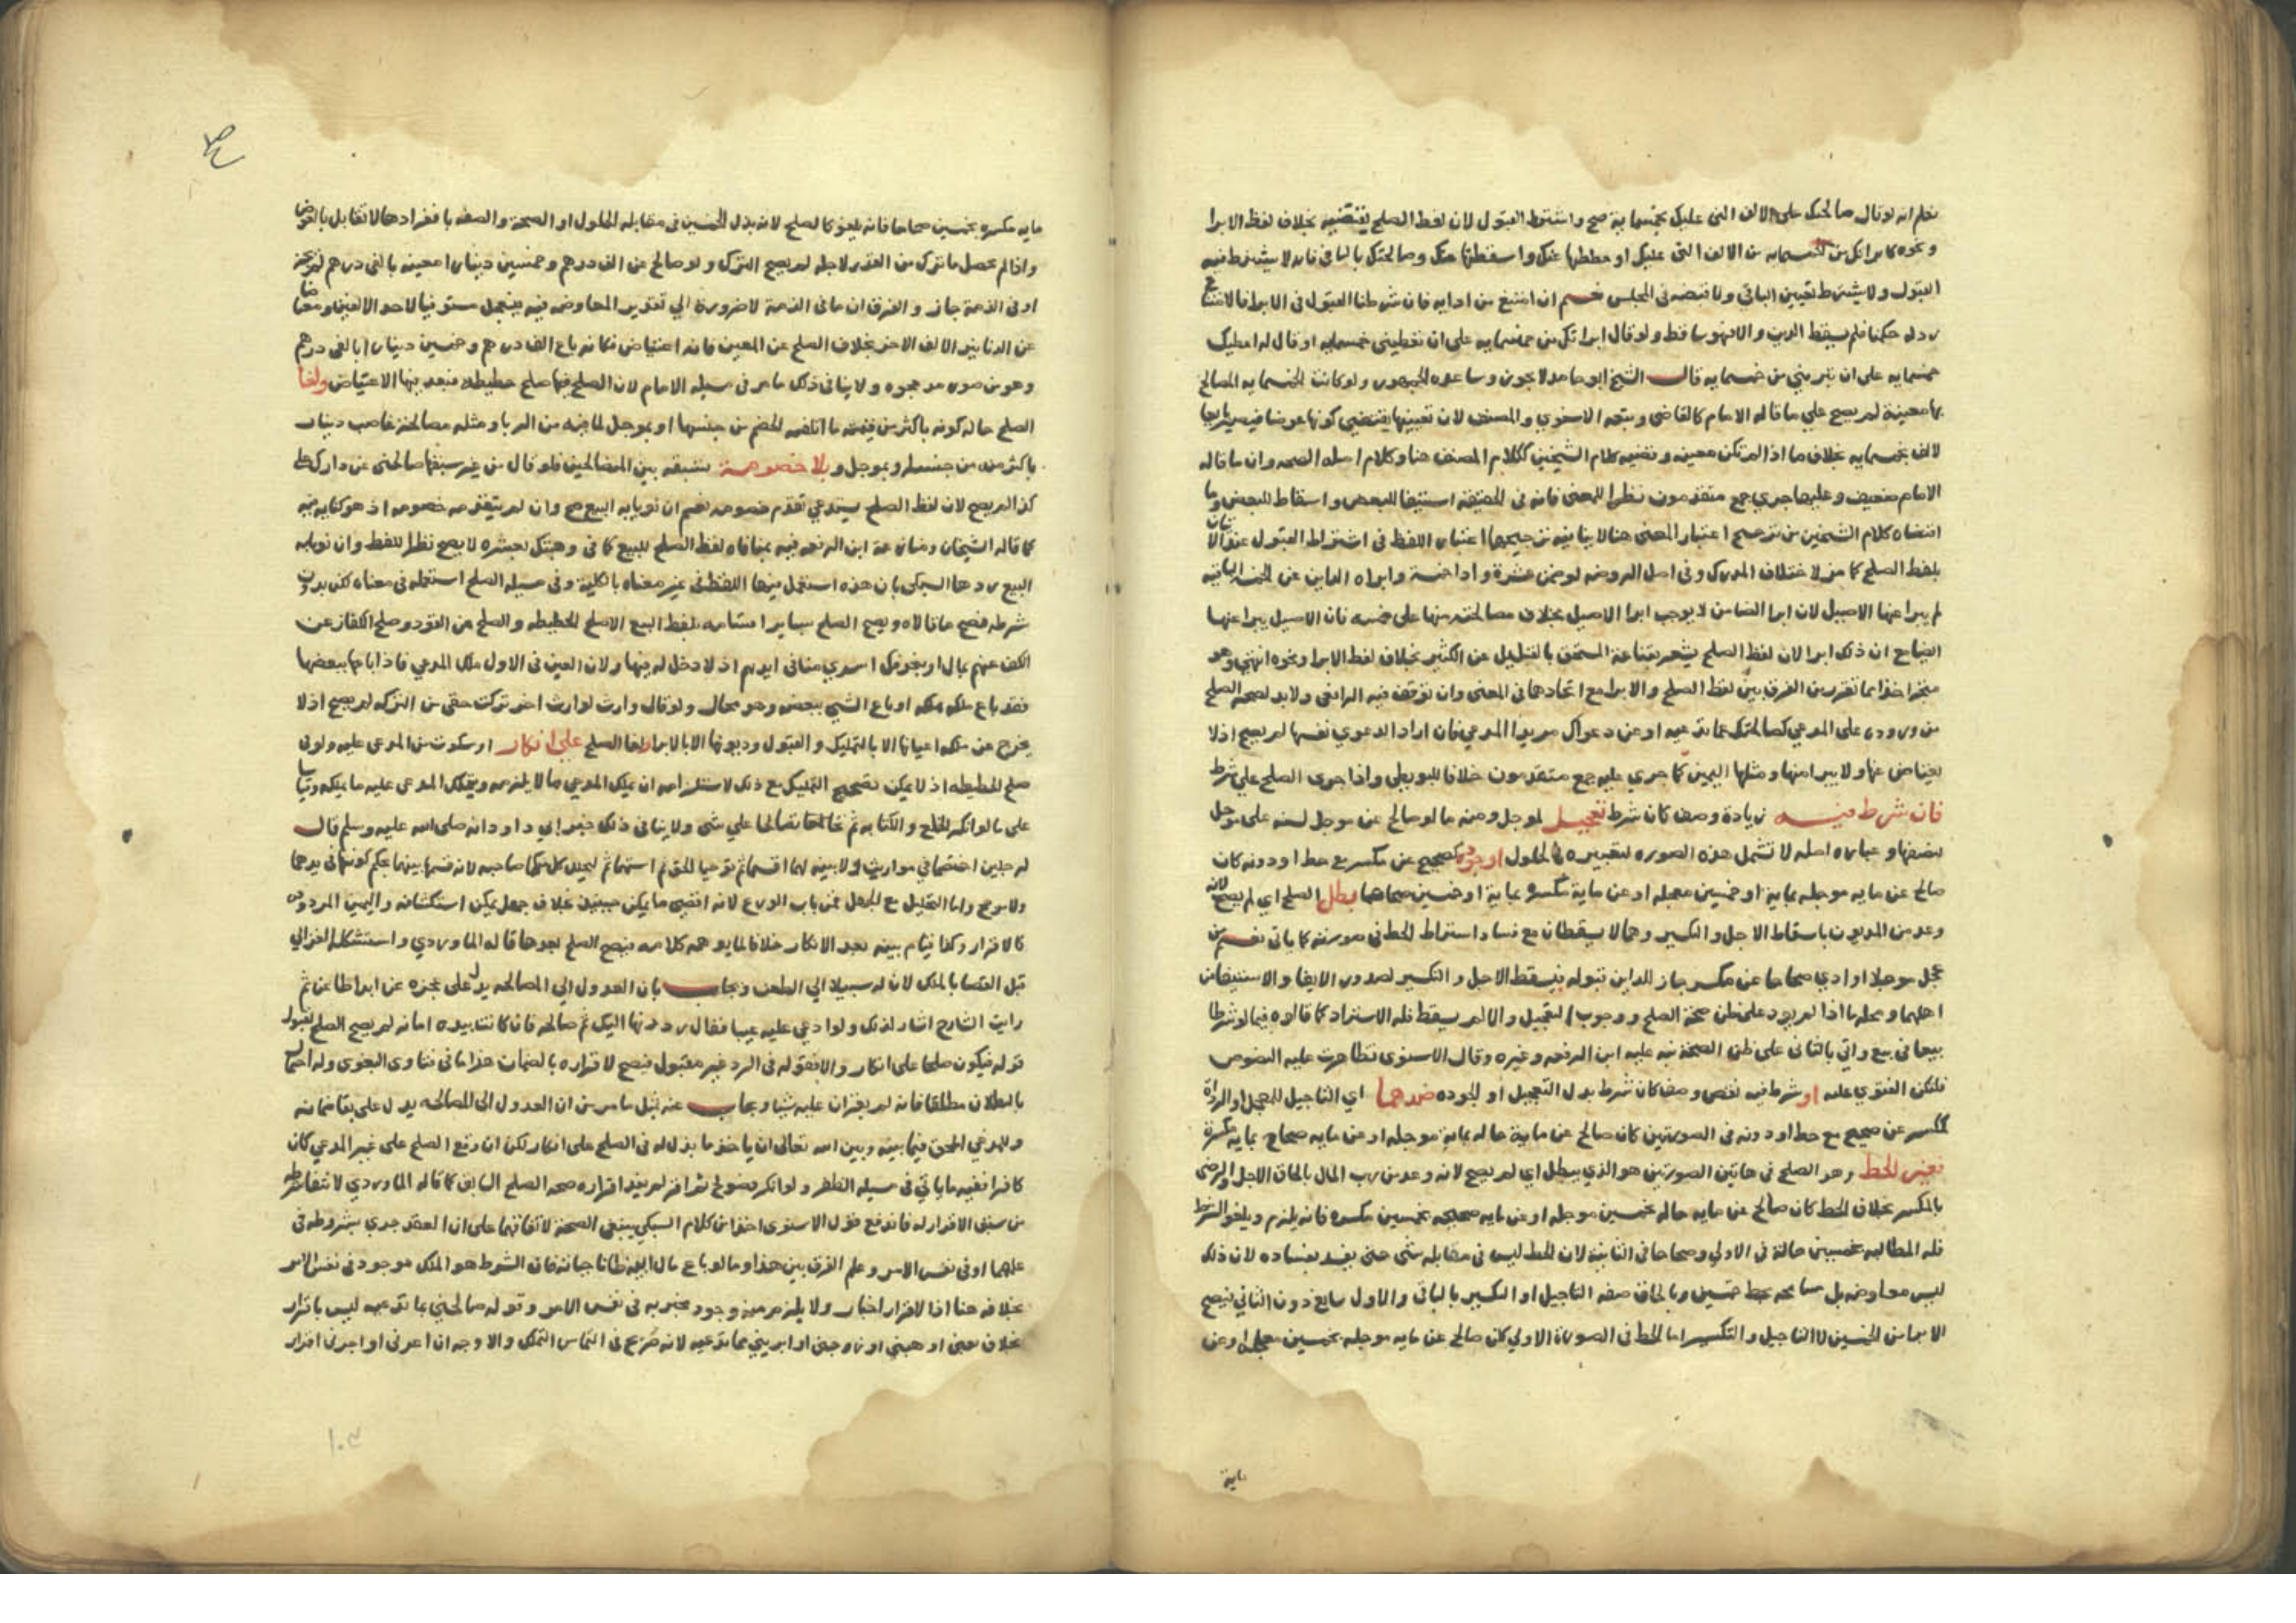 نعلم انه لو قال صالحتك على الالف التى عليك بخمسماية صح واشترط القبول لان لفظ الصلح يقتضيه بخلاف لفظ الابرا
ونحوه كابراتك من خمسمايه من الالف التى عليك او حططها عنك واسقطتها عنك وصالحتك بالباقى فانه لا يشترط فيه
القبول ولا يشترط تعيين الباقي ولا قبضه في المجلس نعم ان امتنع من ادايه فان شرطنا القبول فى الابرا فالامتناع
رد له حكما فلم يسقط الدين والا فهو ساقط ولو قال ابراتك من خمسمايه على ان تعطينى خمسمايه او قال له اعطيك
خمسمايه على ان تبريني من خمسمايه قال الشيخ ابو حامد لا يجوز وساعده الجمهور ولو كانت الخمسمايه المصالح
بها معينة لم يصح على ما قاله الامام كالقاضى وتبعه الاسنوي والمصنف لان تعيينها يقتضى كونها عوضا فيصير بايعا
لالف بخمسمايه بخلاف ما اذا لم تكن معينه وقضيه كلام الشيخين ككلام المصنف هنا وكلام اصله الصحه وان ما قاله
الامام ضعيف وعليها جري جمع متقدمون نظرا للمعنى فانه فى الحقيقه استيفا للبعض واسقاط للبعض وما
اقتضاه كلام الشيخين من ترجيح اعتبار المعنى هنا لا ينافيه ترجيحها اعتبار اللفظ فى اشتراط القبول
بلفظ الصلح كما مر لاختلاف المدرك وفى اصل الروضه لو ضمن عشرة وادا خمسة وابراه الداين عن الخمسه الباقيه
لم يبرا عنها الاصيل لان ابرا الضامن لا يوجب ابرا الاصيل بخلاف مصالحته منها على خمسه فان الاصيل يبرا عنها
ان ذلك ابرا لان لفظ الصلح يشعر بقناعة المستحق بالقليل عن الكثير بخلاف لفظ الابرا ونحوه انتهى وهو
متجه اخذا مما تقرر من الفرق بين لفظ الصلح والابرا مع اتحادهما فى المعنى وان توقف فيه الرافعى ولا بد لصحة الصلح
من وروده على المدعي كصالحتك عما تدعيه او عن دعواك مريدا المدعي فان اراد الدعوي نفسها لم يصح اذ لا
يعتاض عنها ولا يبرا منها ومثلها اليمين كما جري عليه جمع متقدمون خلافا للبويطى واذا جرى الصلح على شرط
فان شرط فيه زيادة وصف كان شرط تعجيل لموجل ومنه ما لو صالح عن موجل لسنه على موجل
لنصفها وعباره اصله لا تشمل هذه الصوره لتعبيره بالحلول او جوده كصحيح عن مكسر مع حط او دونه كان
صالح عن مايه موجله بماية او خمسين معجله او عن ماية مكسره بماية او خمسين صحاحا بطل الصلح اي لم يصح لانه
وعد من المديون باسقاط الاجل والتكسير وهما لا يسقطان مع فساد اشتراط الحط فى صورته كما ياتى نعم من
عجل موجلا او ادي صحاحا عن مكسر جاز للداين قبوله فيسقط الاجل والتكسير لصدور الايفا والاستيفا من
اهلهما ومحله ما اذا لم يود على ظن صحة الصلح ووجوب التعجيل والا لم يسقط فله الاسترداد كما قالوه فيما لو شرطا
بيعا فى بيع واتي بالثانى على ظن الصحة نبه عليه ابن الرفعه وغيره وقال الاسنوى تظاهرت عليه النصوص
فلتكن الفتوي عليه او شرط فيه نقص وصف كان شرط بدل التعجيل او الجوده ضدهما اي التاجيل للمعجل او الرداة
كمكسر عن صحيح مع حط او دونه فى الصورتين كان صالح عن ماية حاله بماية موجله او عن مايه صحاح بمايه مكسرة
فغير الحط وهو الصلح فى هاتين الصورتين هو الذي يبطل اي لم يصح لانه وعد من رب المال بالحاق الاجل والرضى
بالمكسر بخلاف الحط كان صالح عن مايه حاله بخمسين موجله او عن مايه صحيحه بخمسين مكسره فانه يلزم ويلغو الشرط
فله المطالبه بخمسين حالة فى الاولى وصحاحا فى الثانية لان الحط ليس فى مقابله شى حتى يفسد بفساده لان ذلك
ليس معاوضه بل مسامحه بحط خمسين وبالحاق صفه التاجيل او التكسير بالباقى والاول سايغ دون الثانى فيصح
الابرا من الخمسين لا التاجيل والتكسير اما الحط فى الصورة الاولى كان صالح عن مايه موجله بخمسين معجله او عن
ماية
مايه مكسره بخمسين صحاحا فانه يلغو كالصلح لانه بذل الخمسين فى مقابله الحلول او الصحة والصفه بانفرادها لا تقابل بالعوض
واذا لم يحصل ما ترك من القدر لاجله لم يصح الترك ولو صالح عن الف درهم وخمسين دينارا معينه بالفى درهم لم يجز
او فى الذمة جاز والفرق ان ما فى الذمة لا ضرورة الي تقدير المعاوضه فيه فيجعل مستوفيا لاحد الالفين ومعتاضا
عن الدنانير الالف الاخر بخلاف الصلح عن المعين فانه اعتياض فكانه باع الف درهم وخمسين دينارا بالفى درهم
وهو من صور مد عجوه ولا ينافى ذلك ما مر فى مسيله الامام لان الصلح فيها صلح حطيطه فبعد فيها الاعتياض ولغا
الصلح حاله كونه باكثر من قيمة ما اتلفه الخصم من جنسها او بموجل لما فيه من الربا ومثله مصالحة غاصب دينار
باكثر منه من جنسه او بموجل و بلا خصومة تسبقه بين المتصالحين فلو قال من غير سبقها صالحنى عن دارك على
كذا لم يصح لان لفظ الصلح يستدعي تقدم خصومه نعم ان نويا به البيع صح وان لم يتقدمه خصومه اذ هو كنايه فيه
كما قاله الشيخان ومنازعة ابن الرفعه فيه بمنافاه لفظ الصلح للبيع كما فى وهبتك بعشره لا يصح نظرا للفظ وان نويا به
البيع ردها السبكى بان هذه استعمل فيها اللفظ فى غير معناه بالكلية وفى مسيله الصلح استعمله فى معناه لكن بدون
شرطه فصح ما قالاه ويصح الصلح بساير اقسامه بلفظ البيع الا صلح الحطيطه والصلح عن القود وصلح الكفار عن
الكف عنهم بمال او بنحو فك اسري منا فى ايديهم اذ لا دخل له فيها ولان العين فى الاول ملك المدعي فاذا باعها ببعضها
فقد باع ملكه بملكه او باع الشي ببعضه وهو محال ولو قال وارث لوارث اخر تركت حقى من التركه لم يصح اذ لا
يخرج عن ملكه اعيانها الا بالتمليك والقبول وديونها الا بالابرا ولغا الصلح على انكار او سكوت من المدعى عليه ولو فى
صلح الحطيطه اذ لا يمكن تصحيح التمليك مع ذلك لاستلزامه ان يملك المدعي ما لا يملكه ويتملك المدعى عليه ما يملكه وقياسا
على ما لو انكر الخلع والكتابه ثم تصالحا علي شى ولا ينافى ذلك خبر ابي داود انه صلى الله عليه وسلم قال
لرجلين اختصما في مواريث ولا بينه لهما اقتسما ثم توخيا الحق ثم استهما ثم ليحلل كل منكما صاحبه لانه قسمها بينهما بحكم كونهما فى يدهما
ولا مرجح واما التحليل مع الجهل فمن باب الورع لانه اقصى ما يمكن حينيذ بخلاف جهل يمكن استكشافه واليمين المردوده
كالاقرار وكذا قيام بينه بعد الانكار خلافا لما يوهمه كلامه فيصح الصلح بعدها قاله الماوردي واستشكله الغزالي
قبل القضا بالملك لان له سبيلا الي الطعن ويجاب بان العدول الي المصالحه يدل على عجزه عن ابدا طاعن ثم
رايت الشارح اشار لذلك ولو ادعى عليه عيبا فقال رددتها اليك ثم صالحه فان كانت بيده امانه لم يصح الصلح لقبول
قوله فيكون صلحا على انكار والا فقوله فى الرد غير مقبول فيصح لاقراره بالضمان هذا ما فى فتاوى البغوى وله احتمال
بالبطلان مطلقا فانه لم يقر ان عليه شيا ويجاب عنه بمثل ما مر من ان العدول الى المصالحه يدل على بقا ضمانه
وللمدعي المحق فيما بينه وبين الله تعالى ان ياخذ ما بذل له فى الصلح على انكار لكن ان وقع الصلح على غير المدعي كان
كافرا ففيه ما ياتي فى مسيله الظفر ولو انكر فصولح ثم اقر لم يفد اقراره صحه الصلح السابق كما قاله الماوردي لانتفا شرطه
من سبق الاقرار له فاندفع قول الاسنوى اخذا من كلام السبكي ينبغى الصحة لاتفاقهما على ان العقد جري بشروطه فى
علمهما او فى نفس الامر وعلم الفرق بين هذا وما لو باع مال ابيه ظانا حياته فان الشرط هو الملك موجود فى نفس الامر
بخلافه هنا اذ الاقرار اخبار ولا يلزم منه وجود مخبر به فى نفس الامر وقوله صالحنى عما تدعيه ليس باقرار
بخلاف بعنى او هبنى او زوجنى او ابرينى عما تدعيه لانه صريح فى التماس التملك والاوجه ان اعرنى او اجرنى اقرار